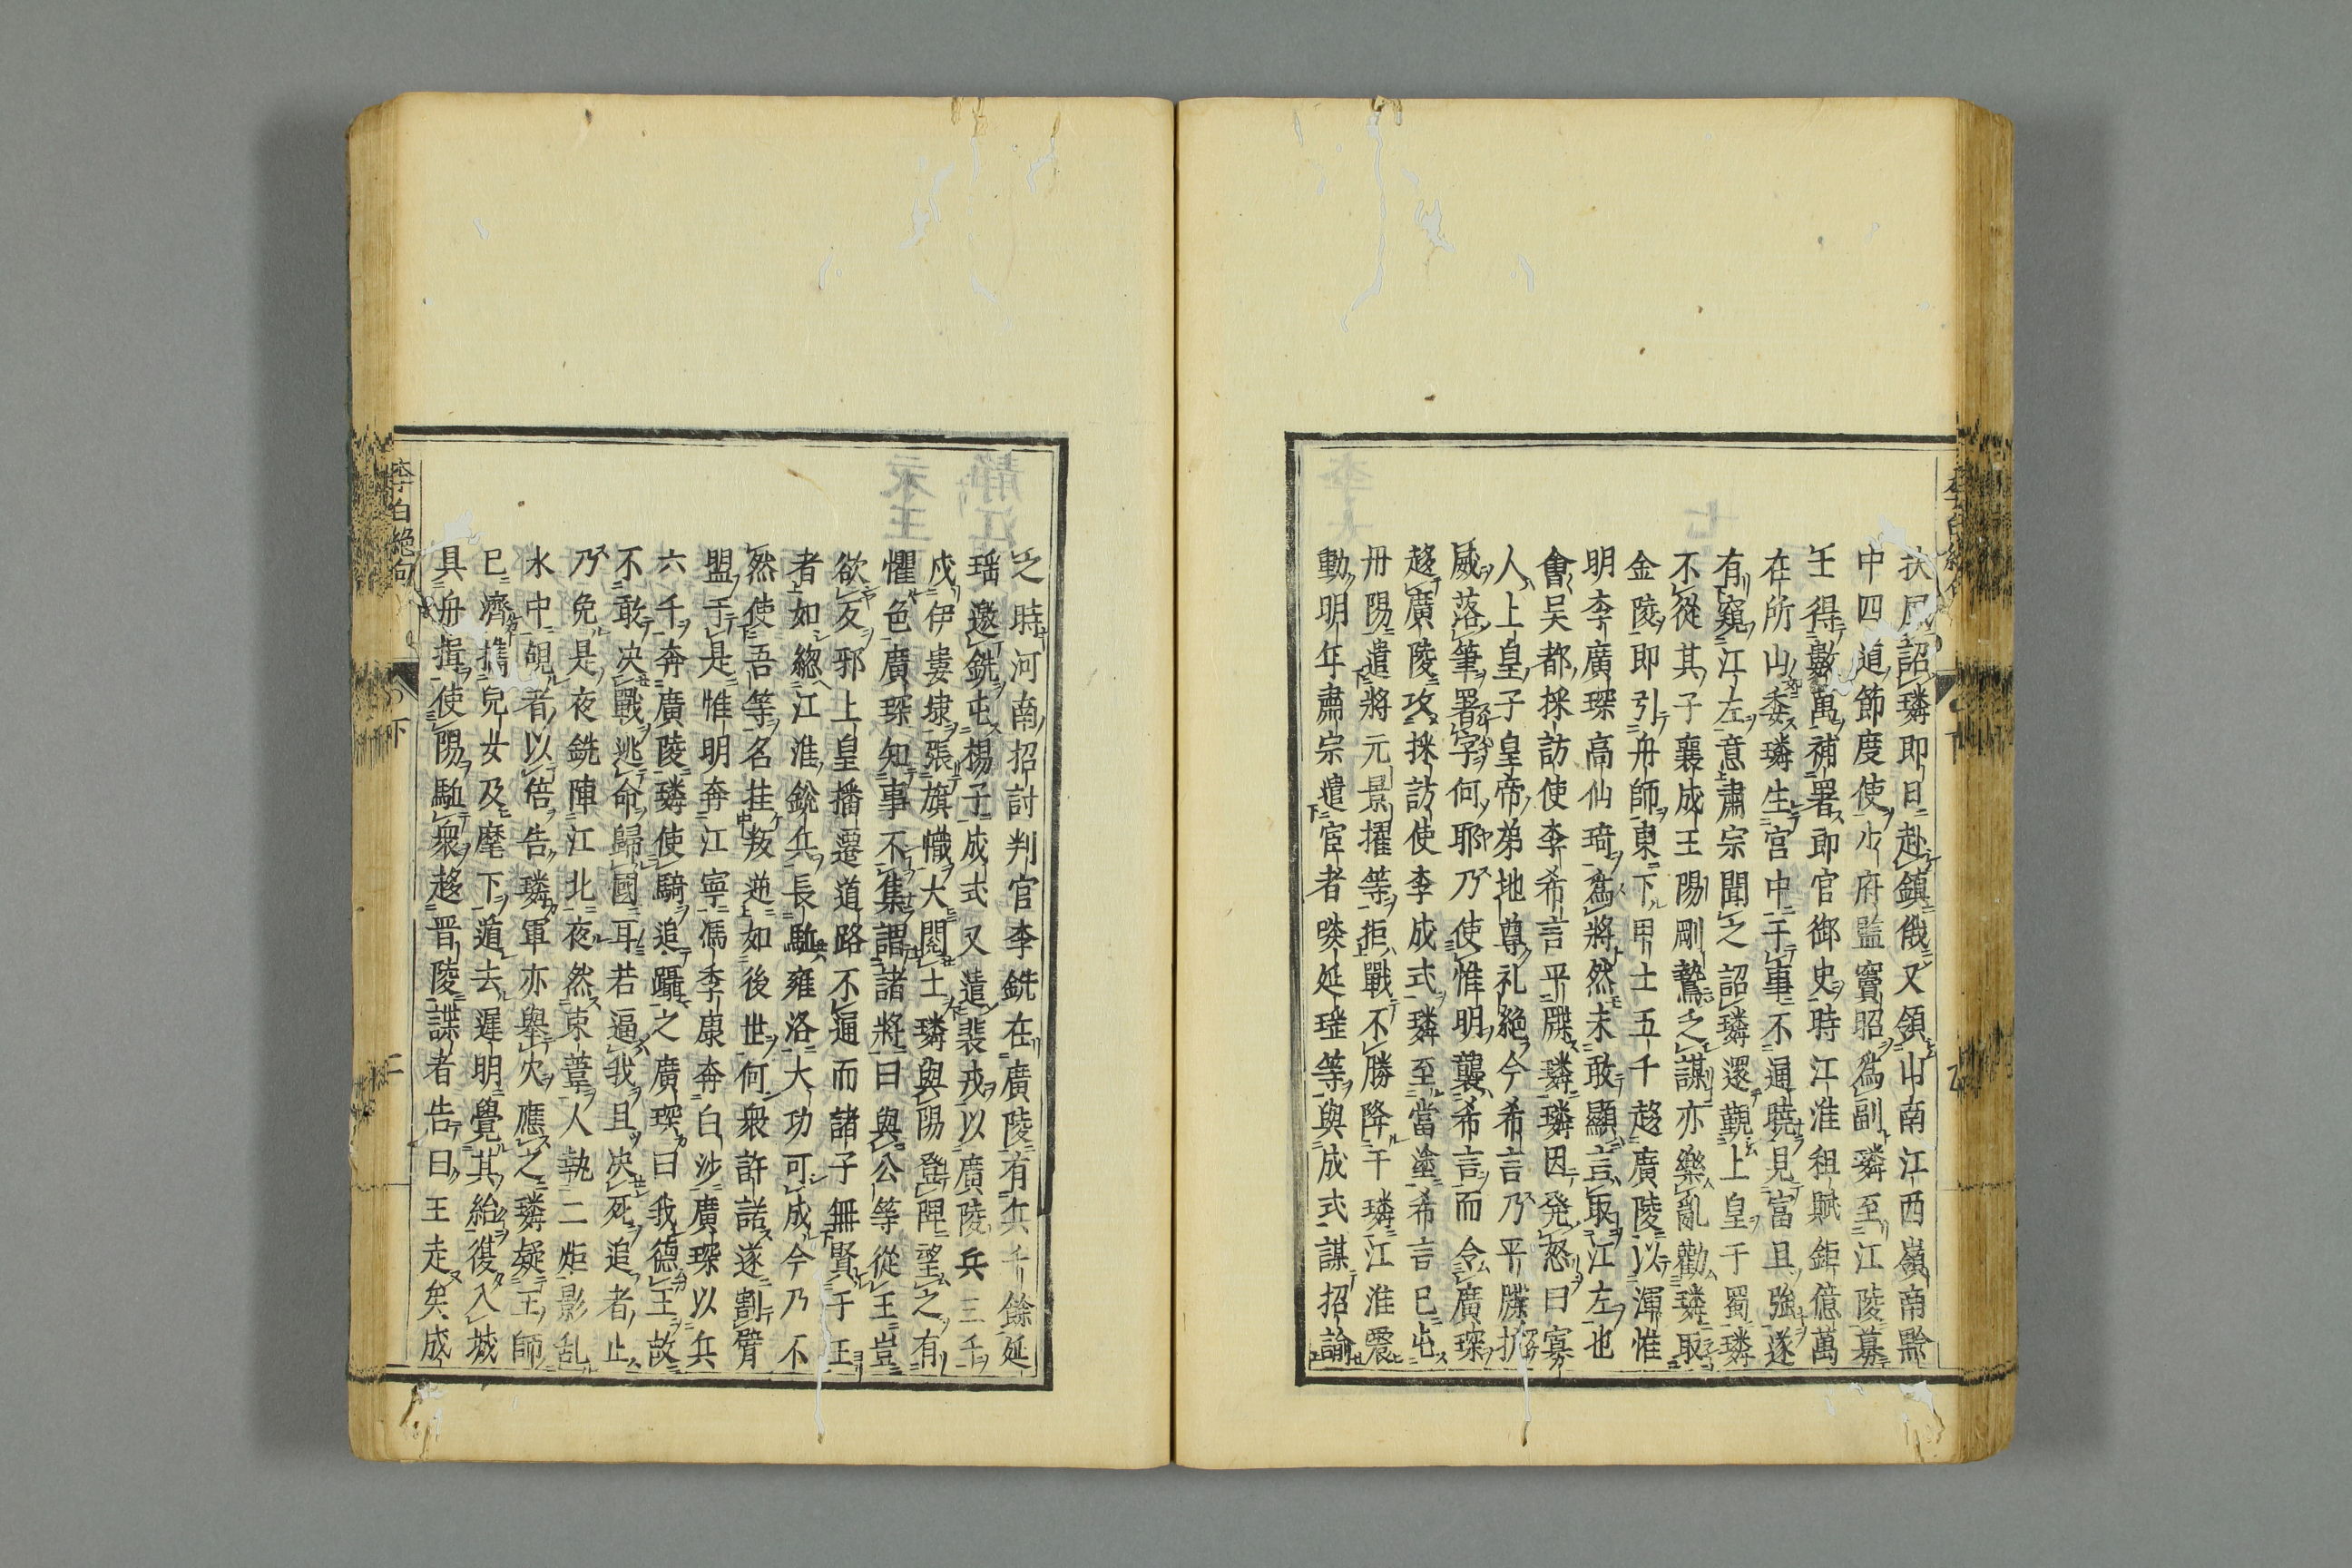 扶風詔璘即日赴鎮俄又領山南江西嶺南黔
中四道節度使少府監竇昭為副璘至江陵募
王得數萬補署即官御史時江淮租賦鉅億萬
在所山委璘生宮中于事不通曉見富且強遂
有窺江左意肅宗聞之詔璘還覲上皇于蜀璘
不從其子襄成王𠃓剛鷙之謀亦樂亂勸璘取
金陵即引舟師東下甲士五千趍廣陵以渾惟
明李廣琛高仙琦為將然未敢顯言取江左也
會吳都採訪使李希言平牒璘璘因発怒曰寡
人上皇子皇帝弟地尊礼絶今希言乃平牒抗
威落筆署字何耶乃使惟明襲希言而令廣琛
趍廣陵攻採訪使李成式璘至當塗希言已屯
丹陽遣將元景擢等拒戰不勝降于璘江淮震
動明年肅宗遣宦者啖延瑤等與成式謀招諭
之時河南招討判官李銑在廣陵有兵千餘延
瑶邀銑屯楊子成式又遣裴戎以廣陵兵三千
戍伊婁埭張旗幟大閱士璘與𠃓登陴望之有
懼色廣琛知事不集謂諸將曰與公等從王豈
欲反邪上皇播遷道路不通而諸子無賢于王
者如総江淮銳兵長驅雍洛大功可成今乃不
然使吾等名挂叛逆如後世何衆許諾遂割臂
盟于是惟明奔江寧馮李康奔白沙廣琛以兵
六千奔廣陵璘使騎追躡之廣琛曰我德王故
不敢决戰逃命歸國耳若逼我且决死追者止
乃免是夜銑陣江北夜然束葦人執二炬影乱
水中覘者以倍告璘軍亦舉火應之璘疑王師
已濟携兒女及麾下遁去遲明覺其紿復入城
具舟揖使𠃓驅衆趍晋陵諜者告曰王走矣成
李白絶句
下
二